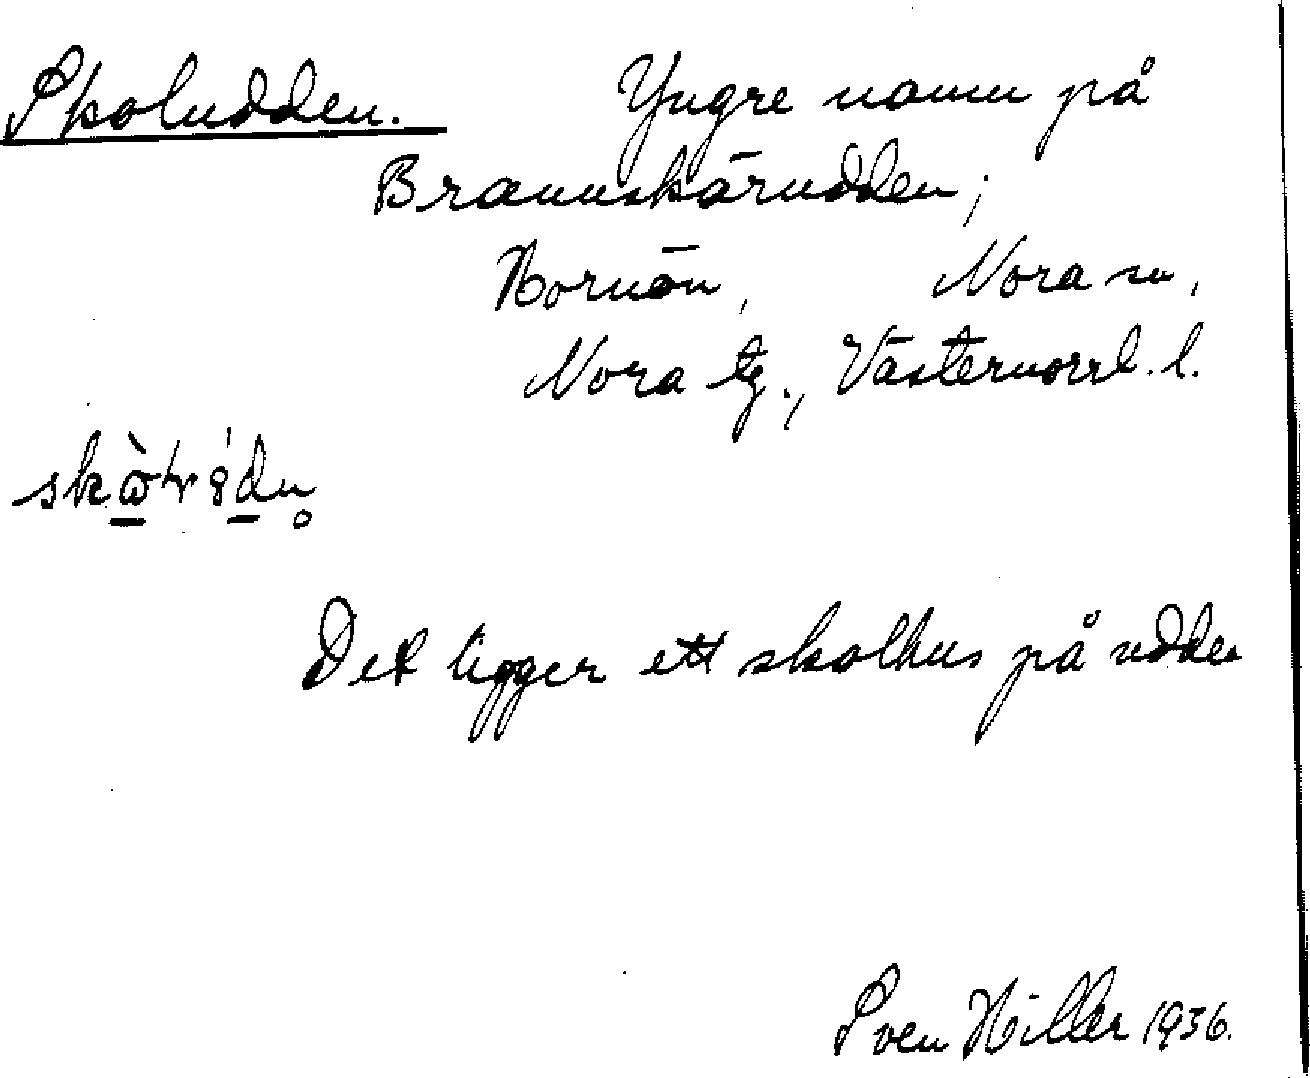 Skoludden. Yngre namn på
Brannskärudden;
Hornön, Nora sn,
Nora tg., Västernorrl. l.
Det ligger ett skolhus på udden
Sven Hiller 1936.